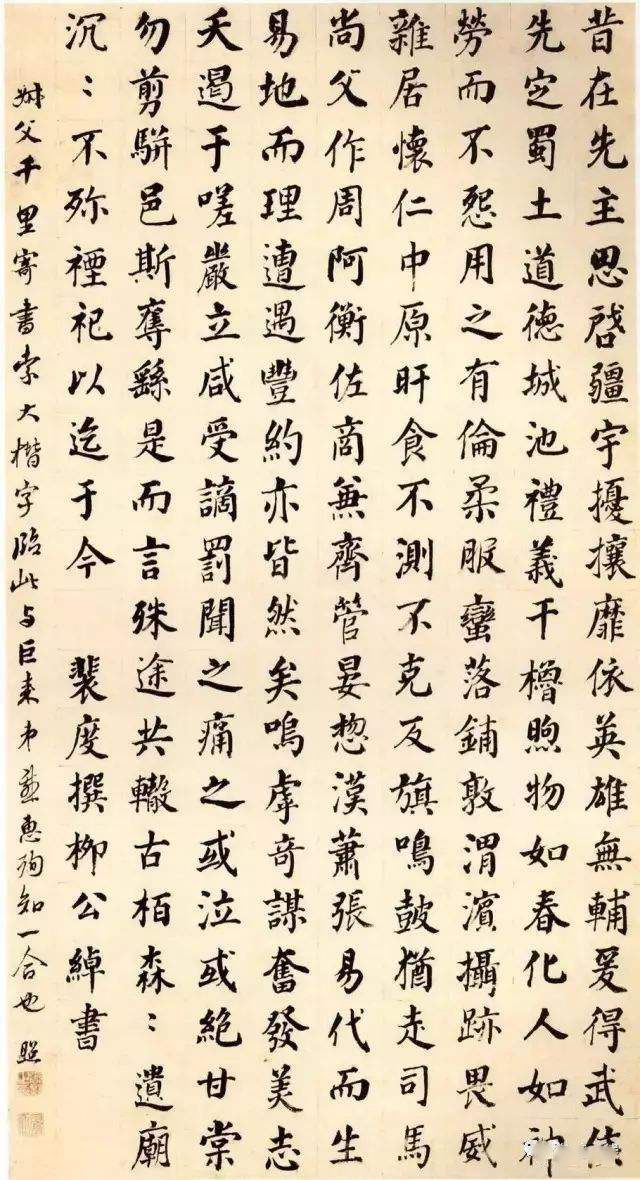 昔在先主思啓疆宇擾攘靡依英雄無輔爰得武侯
先定蜀土道德城池禮義干櫓煦物如春化人如神
勞而不怨用之有倫柔服蠻落鋪敦渭濱攝跡畏威
雜居懷仁中原旰食不測不克反旗鳴鼓猶走司馬
尚父作周阿衡佐商兼齊管晏揔漢蕭張易代而生
易地而理遭遇豐約亦皆然矣嗚虖奇謀奮發美志
夭遏于嗟嚴立咸受謫罰聞之痛之或泣或絕甘棠
勿剪駢邑斯奪繇是而言殊途共轍古栢森:遺廟
沉:不殄禋祀以迄于今 裴度撰柳公綽書
叔父千里寄書索大楷字臨此与巨來弟惠知一合也 照